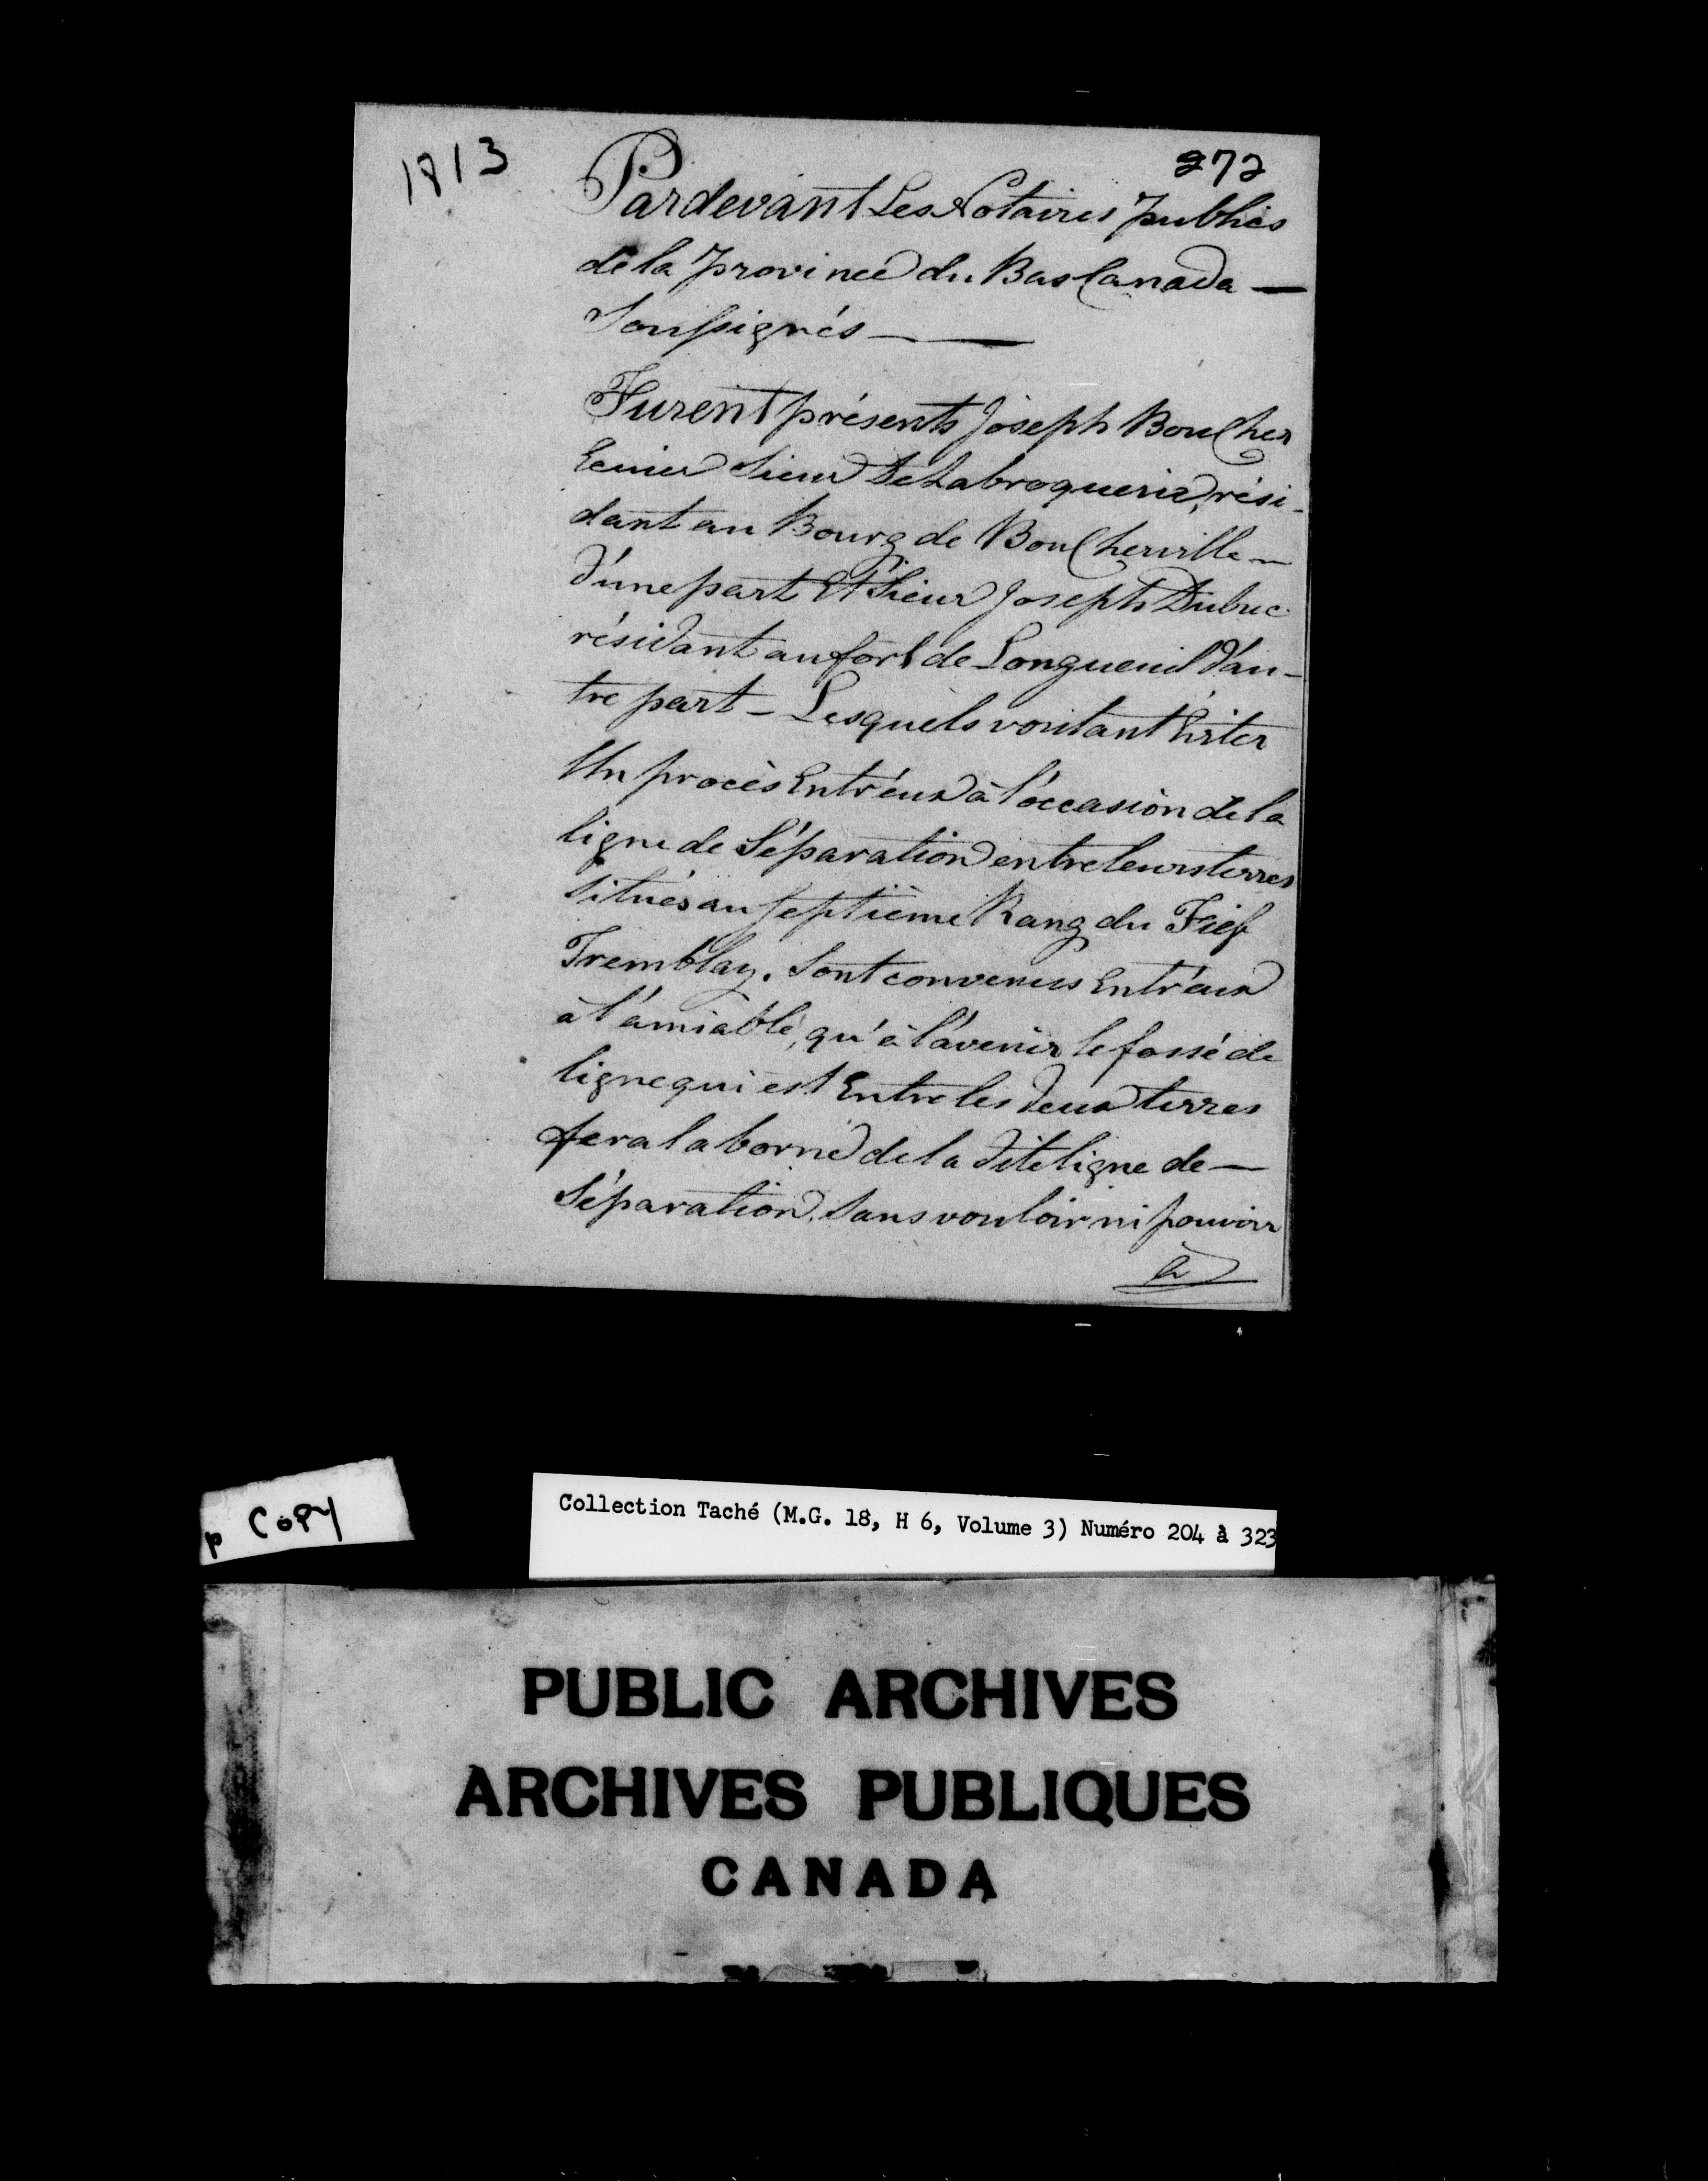 1813
272
Pardevant Les Notaires publics
de la province du Bas Canada —
Soussignés —
Furent présents Joseph Boucher
Ecuier Sieur DeLabroquerie, rési-
dant au Bourg de Boucherville —
d'une part Et Sieur Joseph Dubuc
résidant au fort de Longueuil d'au-
tre part — Lesquels voulant Eviter
Un procès Entr'eux à l'occasion de la
ligne de Séparation entre leurs terres
situés au septième Rang du Fief
Tremblay. Sont convenus Entr'eux
à l'amiable, qu'à l'avenir le fossé de
ligne qui est Entre les deux terres
sera la borne de la dite ligne de —
Séparation, Sans vouloir ni pouvoir
à
p COPY
Collection Taché (M.G. 18, H 6, Volume 3) Numéro 204 à 323
PUBLIC ARCHIVES
ARCHIVES PUBLIQUES
CANADA